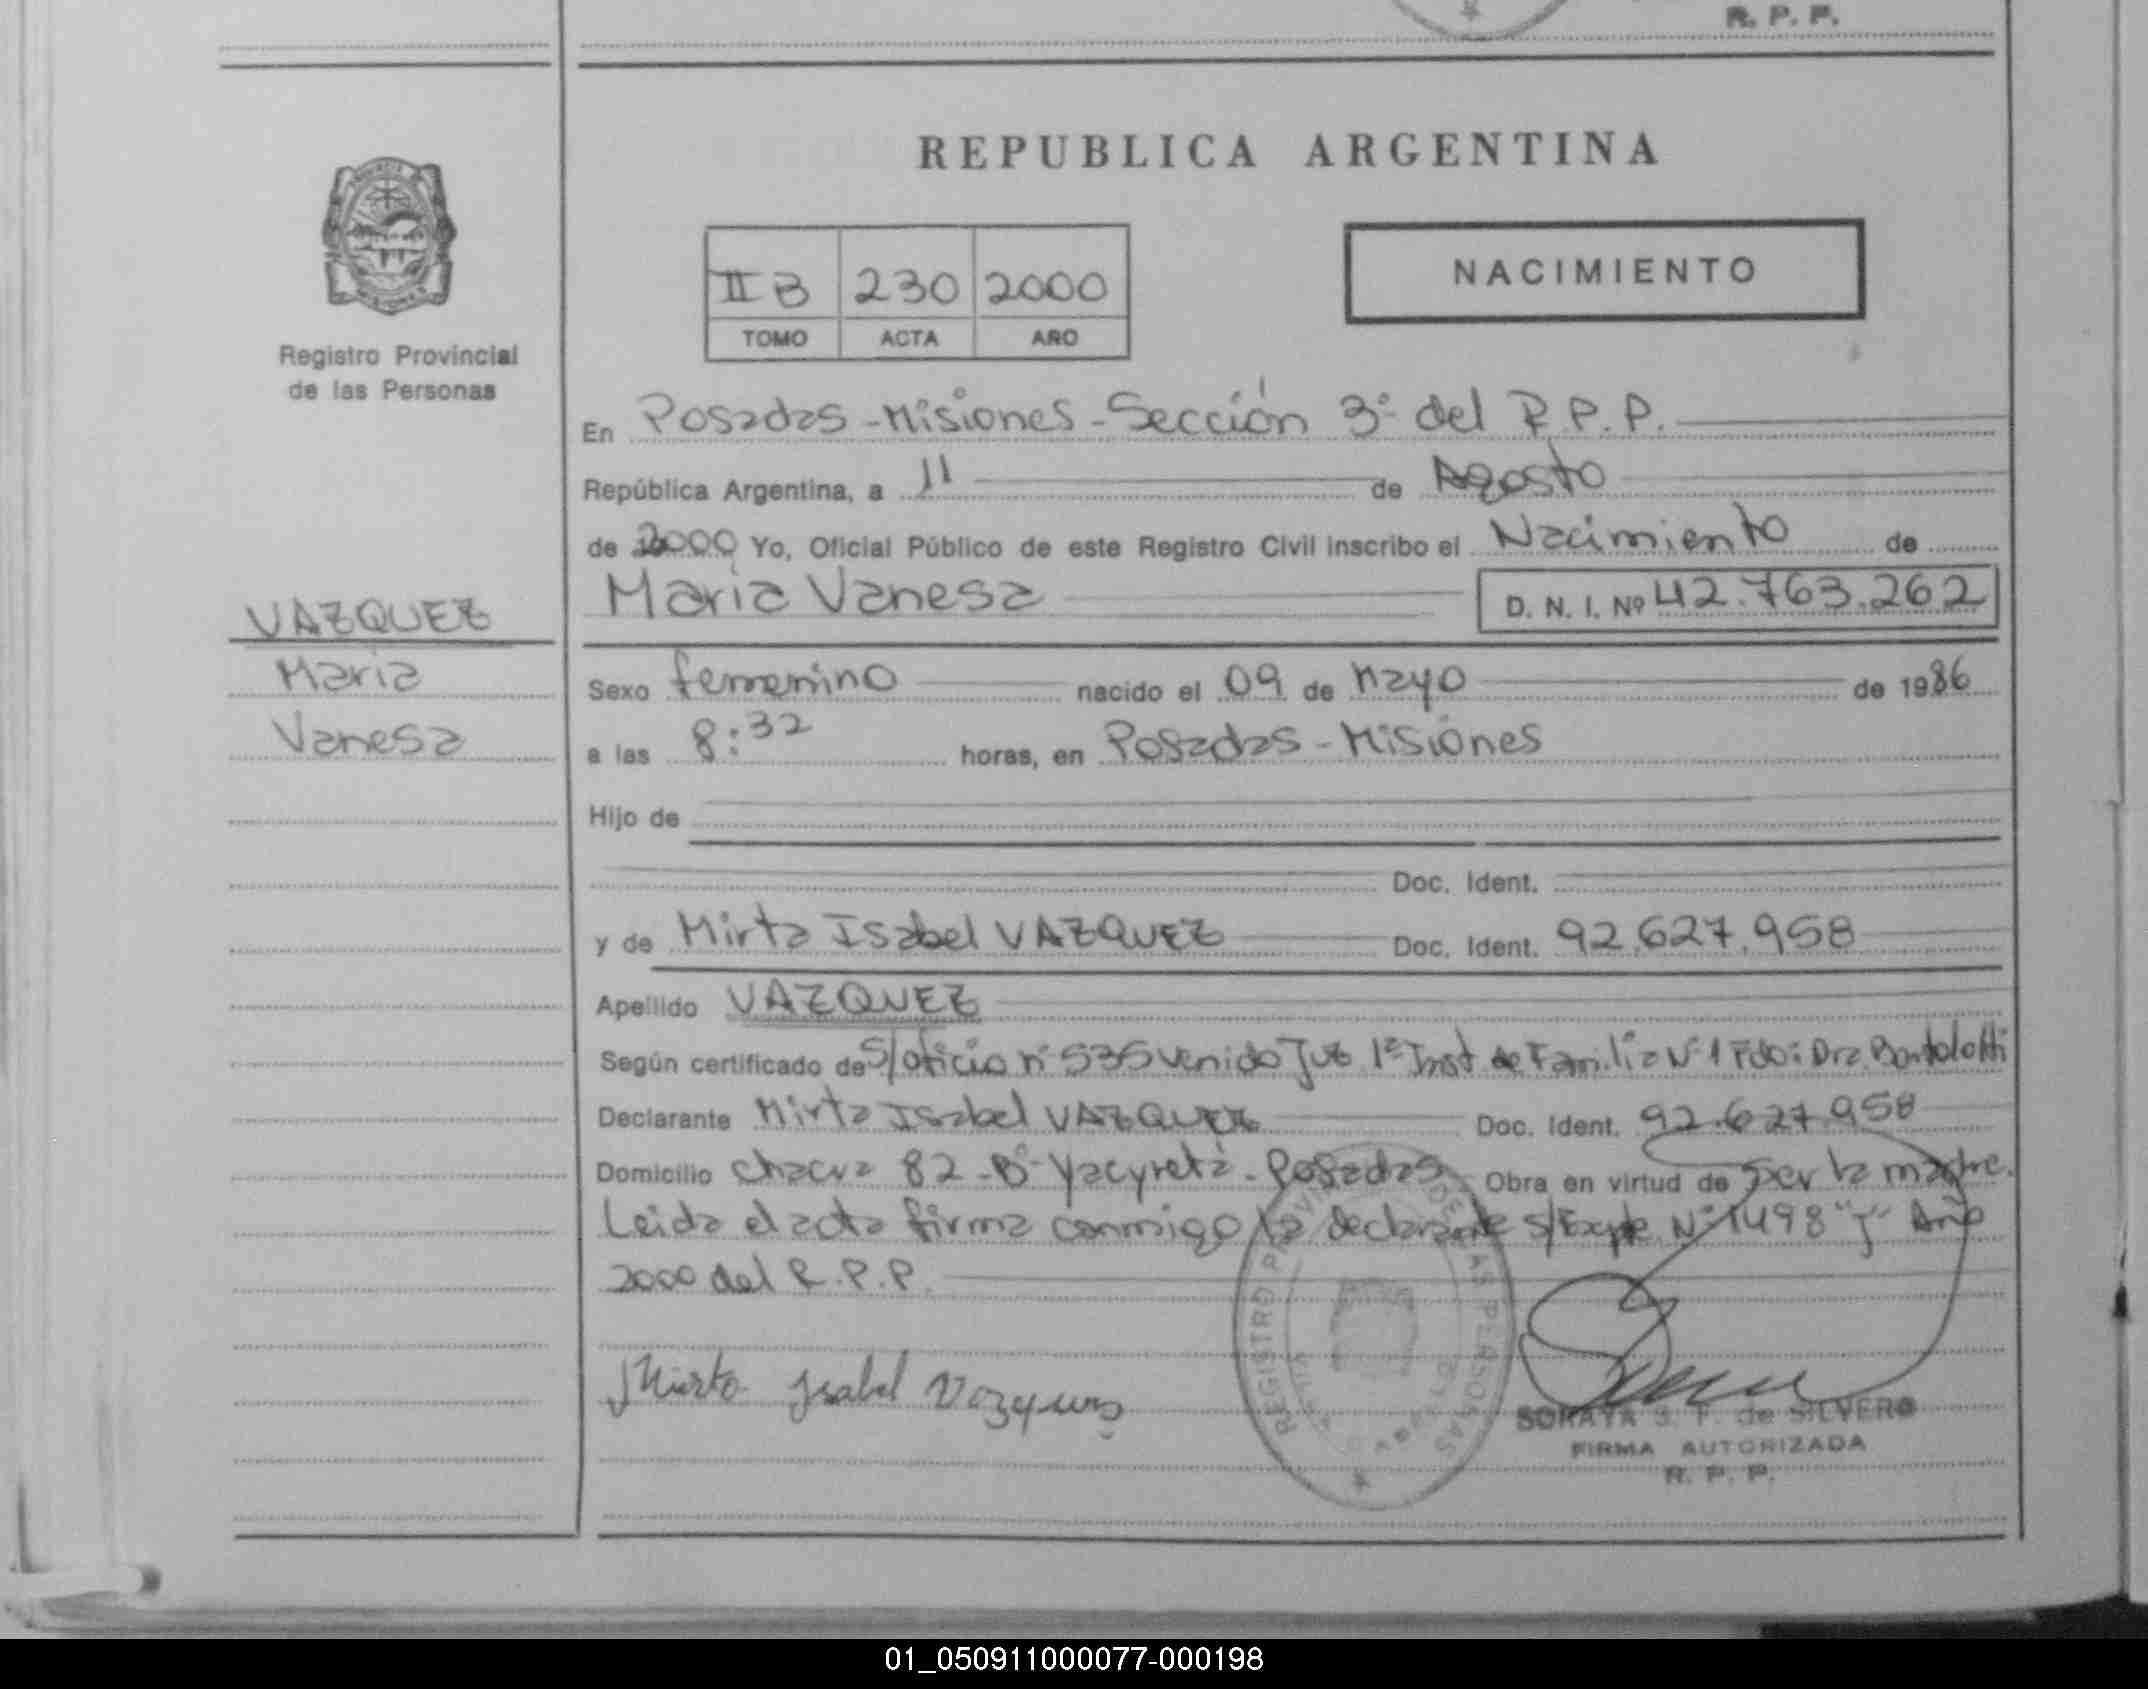 R. P. P.
REPUBLICA ARGENTINA
II B 230 2000
TOMO ACTA AÑO
NACIMIENTO
Registro Provincial
de las Personas
En Posadas - Misiones - Sección 3ª del R.P.P.
República Argentina, a 11 de Agosto
de 2000 Yo, Oficial Público de este Registro Civil inscribo el Nacimiento de
Maria Vanesa D. N. I. Nº 42.763.262
VAZQUEZ
Maria
Vanesa
Sexo femenino nacido el 09 de mayo de 1986
a las 8:32 horas, en Posadas - Misiones
Hijo de
Doc. Ident.
y de Mirta Isabel VAZQUEZ Doc. Ident. 92.627.958
Apellido VAZQUEZ
Según certificado de S/oficio nº 535 venido Juz 1ª Inst de Familia Nº 1 Fdo: Dra. Bortolotti
Declarante Mirta Isabel VAZQUEZ Doc. Ident. 92.627.958
Domicilio chacra 82 - Bº Yacyreta - Posadas Obra en virtud de ser la madre.
Leida el acta firma conmigo la declarante s/Expte Nº 1498 "J" Año
2000 del R.P.P.
Mirta Isabel Vazquez
REGISTRO PROVINCIAL DE LAS PERSONAS
SORAYA S. F. de SILVERO
FIRMA AUTORIZADA
R. P. P.
01_050911000077-000198